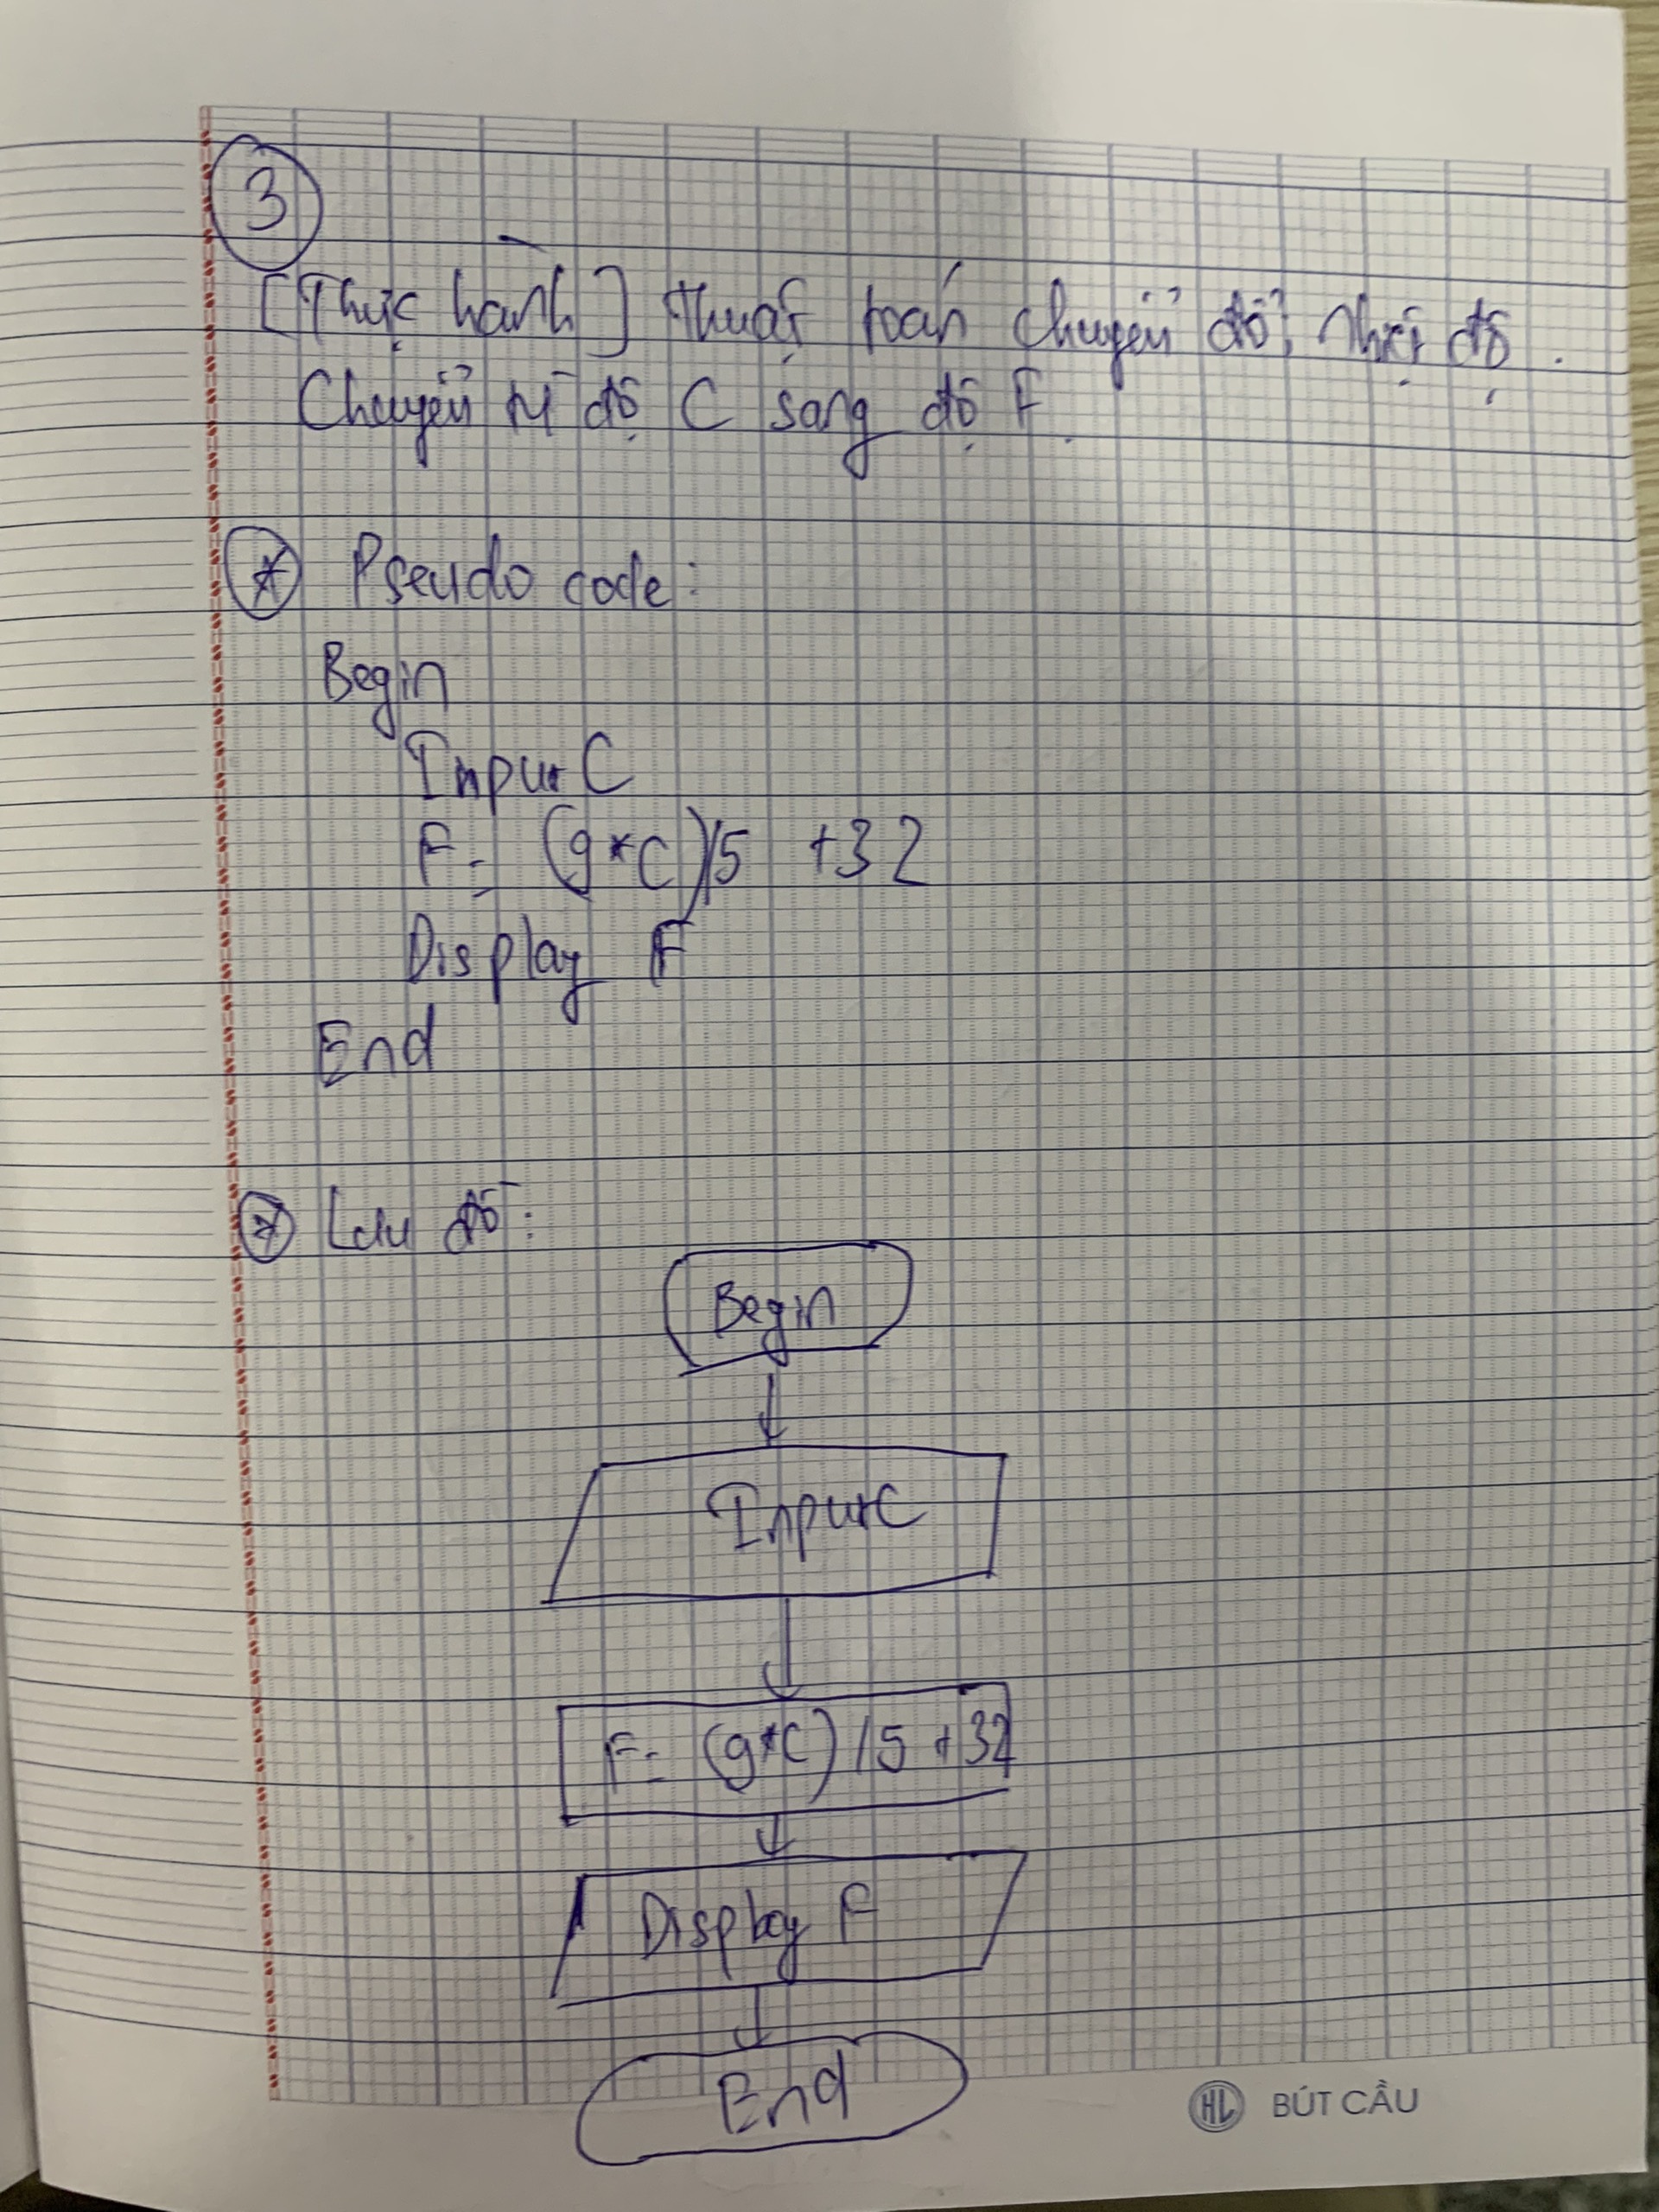 3
[Thực hành] thuật toán chuyển đổi nhiệt độ.
Chuyển từ độ C sang độ F.
* Pseudo code:
Begin
Input C
F = (9*C)/5 +32
Display F
End
* Lưu đồ:
Begin
Input C
F = (9*C) / 5 + 32
Display F
End
HL BÚT CẦU